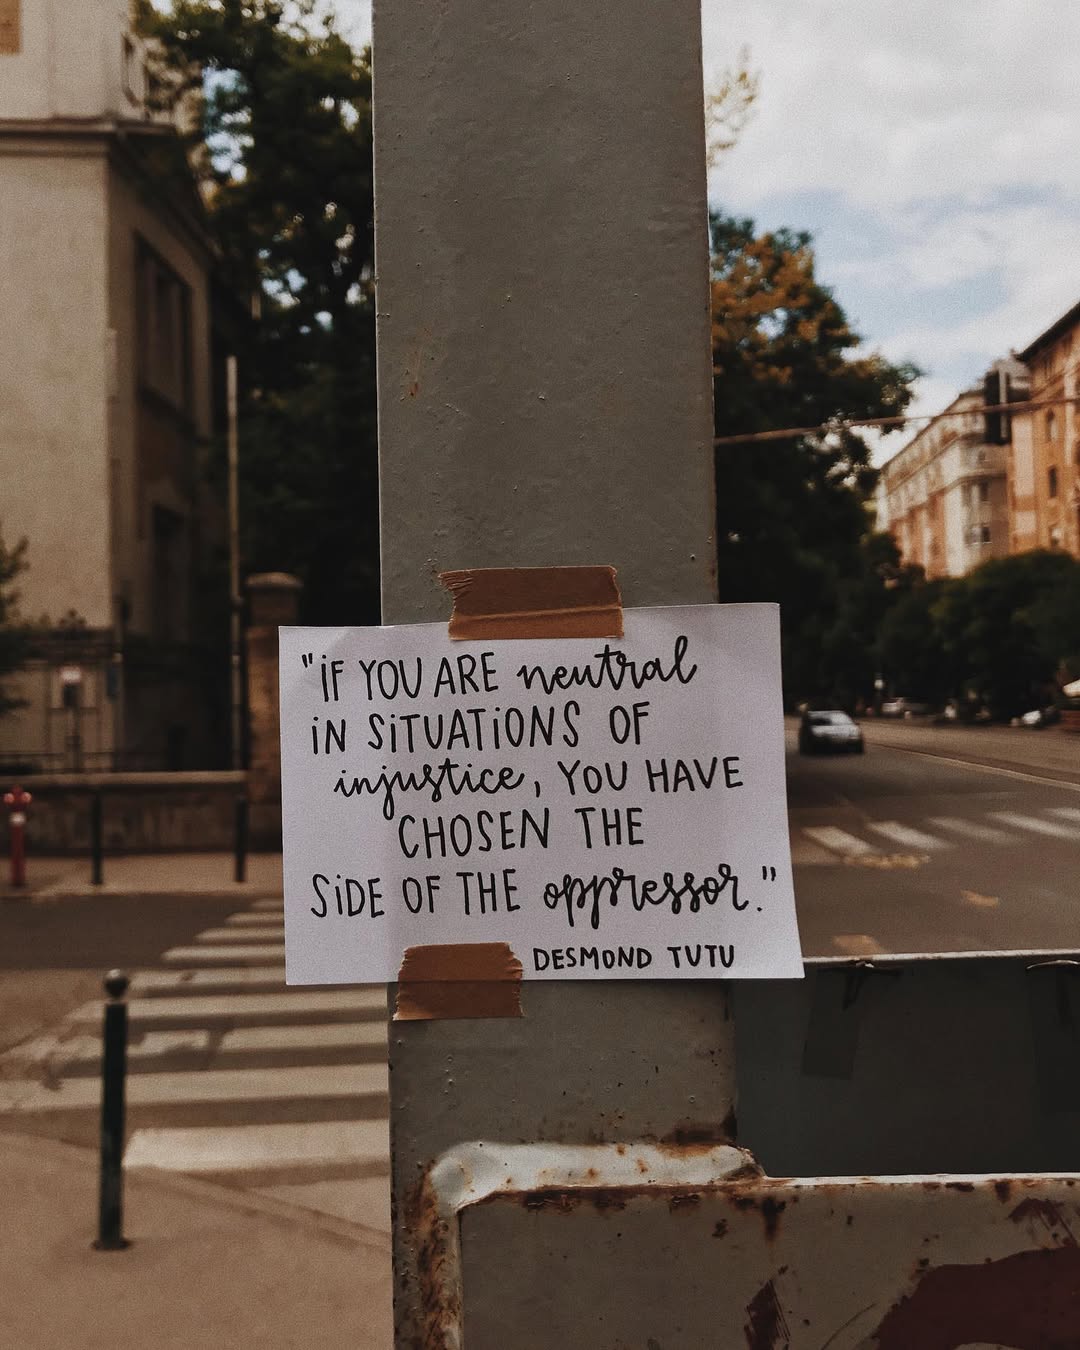 "iF YOU ARE neutral
iN SiTUATiONS OF
injustice, YOU HAVE
CHOSEN THE
SiDE OF THE oppressor."
DESMOND TUTU